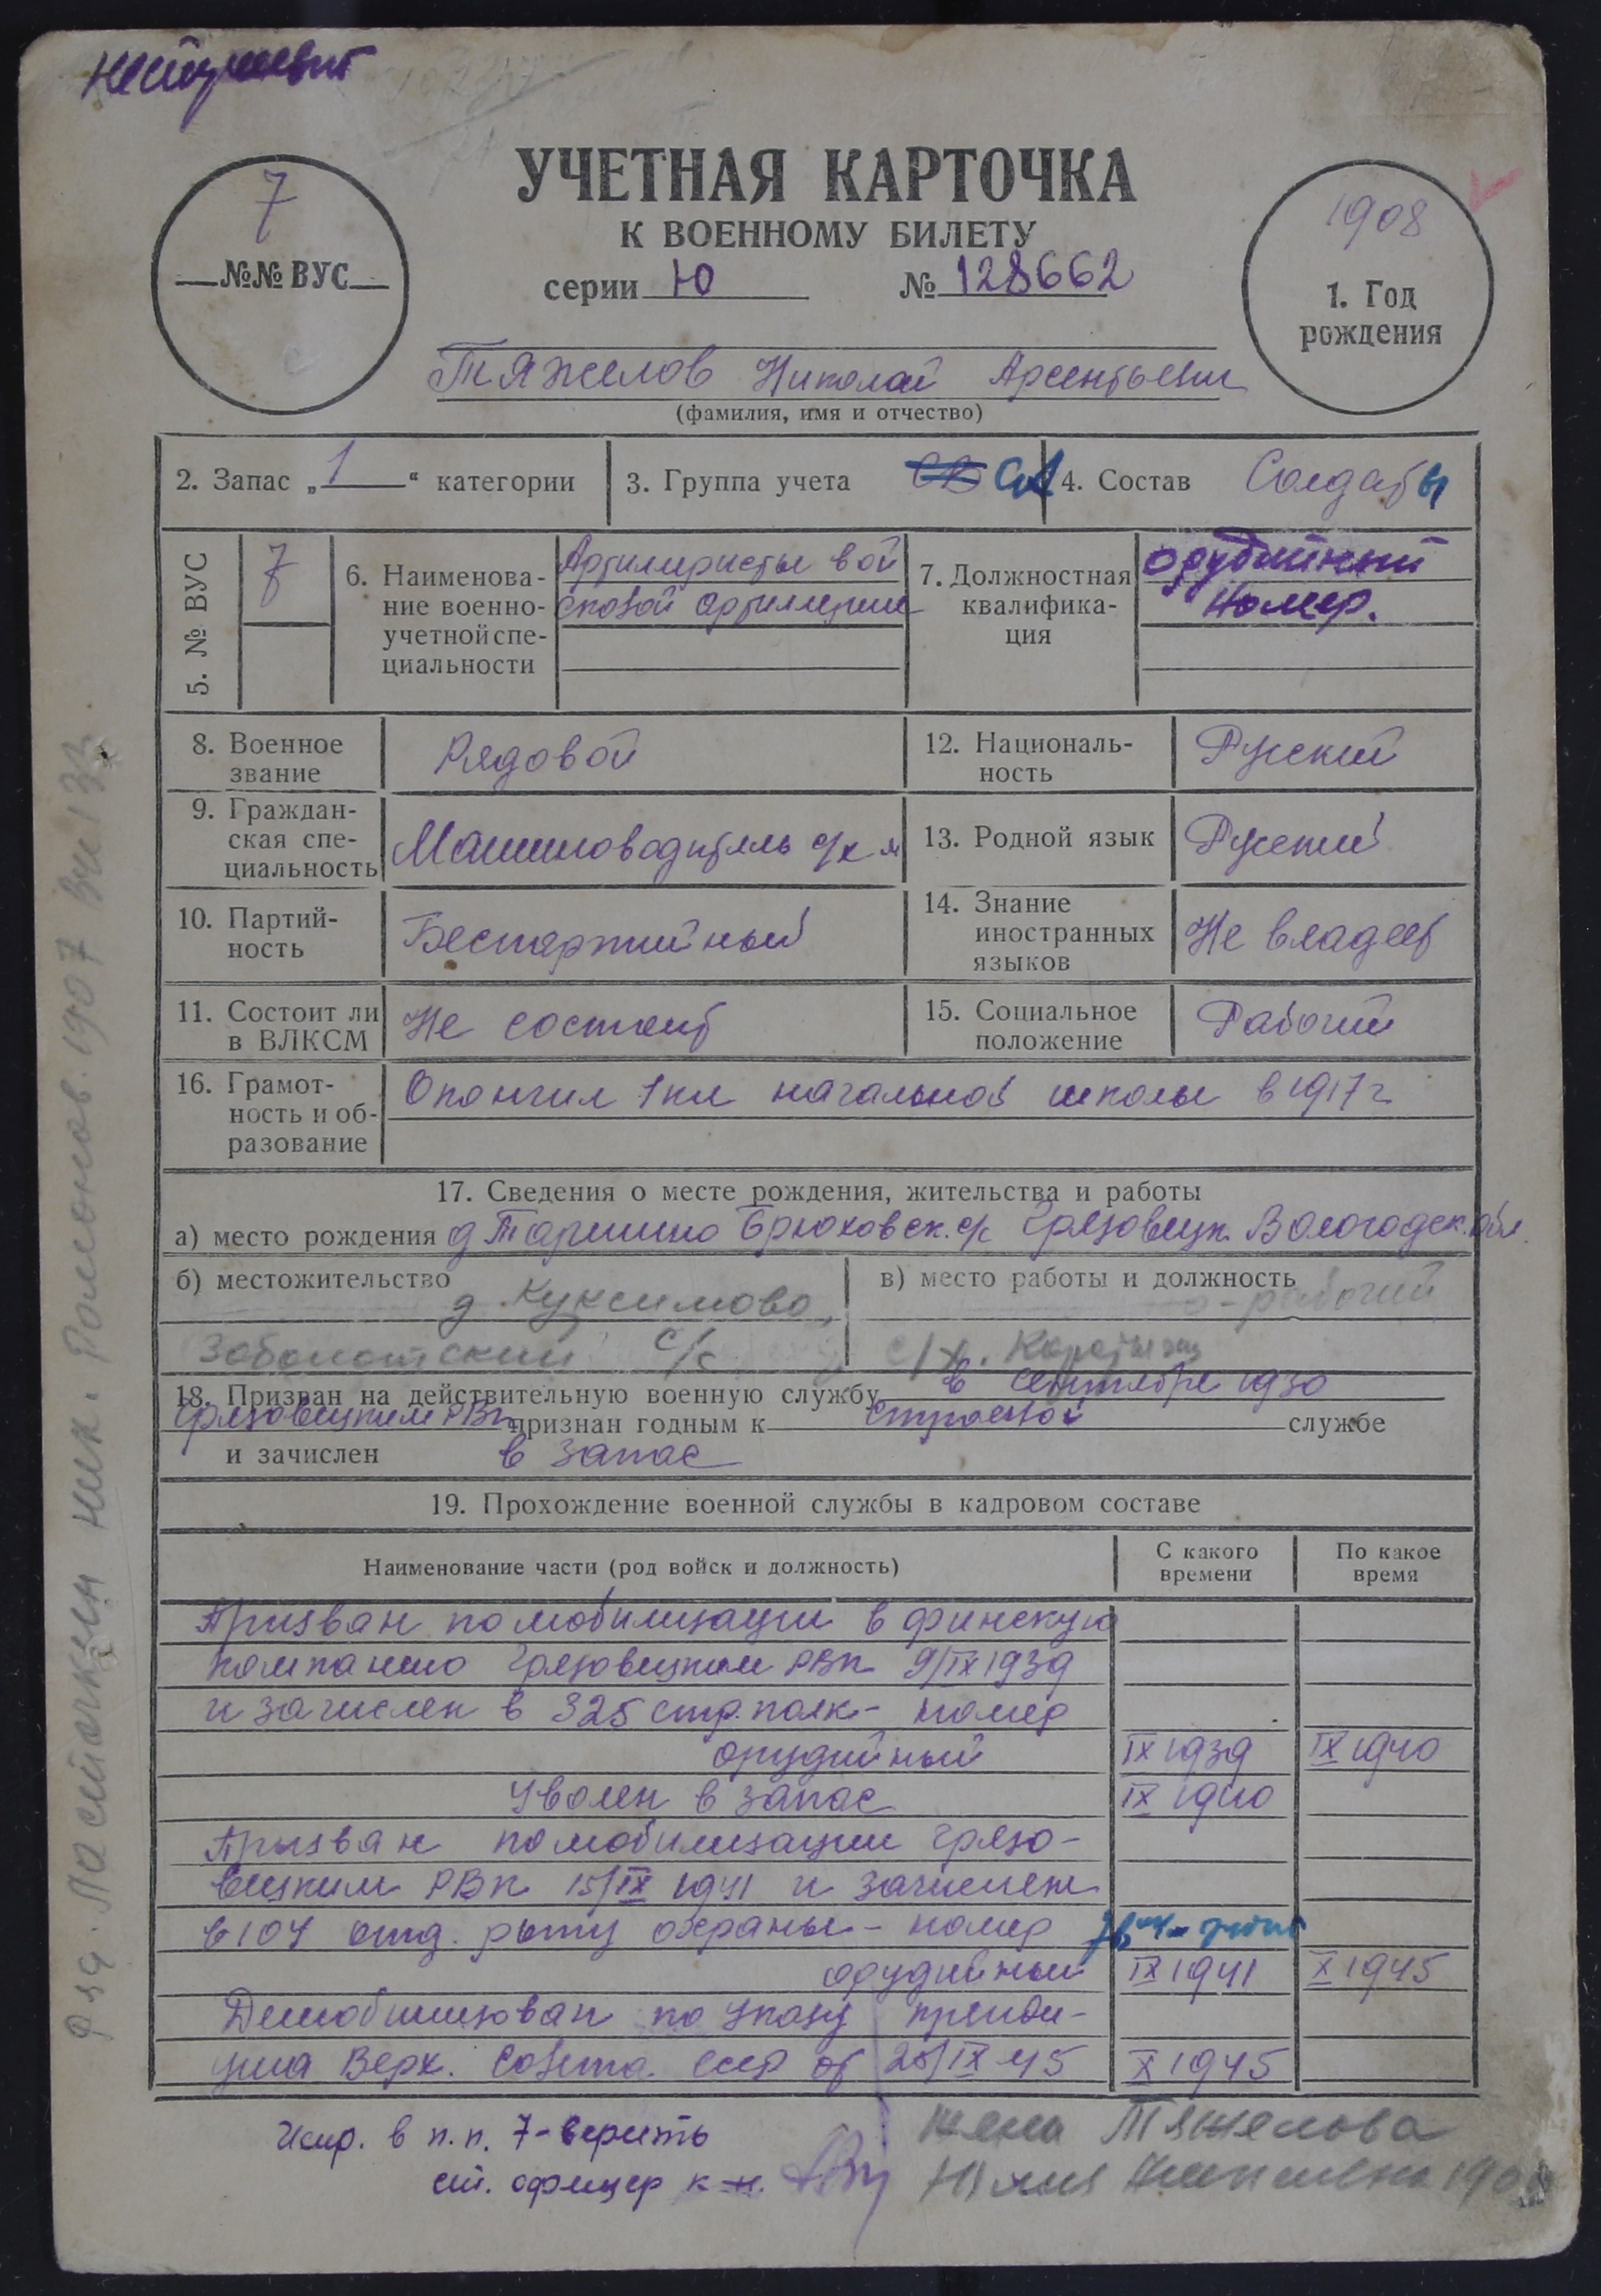 УЧЕТНАЯ КАРТОЧКА
К ВОЕННОМУ БИЛЕТУ
серии Ю № 128662
7
№№ ВУС
1908
1. Год
рождения
Тяжелов Николай Арсентьевич
(фамилия, имя и отчество)
2. Запас „1“ категории
3. Группа учета СА
4. Состав Солдаты
5. № ВУС 7
6. Наименова-
ние военно-
учетной спе-
циальности
Артилиристы вой
сковой артиллерии
7. Должностная
квалифика-
ция
орудийный
номер.
8. Военное
звание
Рядовой
12. Националь-
ность
Русский
9. Граждан-
ская спе-
циальность
Машиноводитель с/х м
13. Родной язык
Русский
10. Партий-
ность
Беспартийный
14. Знание
иностранных
языков
Не владеет
11. Состоит ли
в ВЛКСМ
Не состоит
15. Социальное
положение
Рабочий
16. Грамот-
ность и об-
разование
Окончил 1 кл начальной школы в 1917 г
17. Сведения о месте рождения, жительства и работы
а) место рождения д Таршино Брюховск. с/с Грязовецк. Вологодск. обл.
б) местожительство
д. Куксимово,
Заболотский с/с
в) место работы и должность
рабочий
с/х.
18. Призван на действительную военную службу в сентябре 1930
Грязовецким РВк признан годным к строевой службе
и зачислен в запас
19. Прохождение военной службы в кадровом составе
Наименование части (род войск и должность)
С какого
времени
По какое
время
Призван по мобилизации в финскую
компанию Грязовецким РВк 9/IX 1939
и зачислен в 325 стр. полк - номер
орудийный IX 1939 IX 1940
Уволен в запас IX 1940
Призван по мобилизации Грязо-
вецким РВк 15/IX 1941 и зачислен
в 104 отд. роту охраны - номер
орудийный IX 1941 X 1945
Демобилизован по Указу президи-
ума Верх. Совета СССР от 25/IX 45 X 1945
Испр. в п.п. 7 - верить
ст. офицер
жена Тяжелова
Юлия
Ряд. Ласточкин Ник. Полионов. 1907